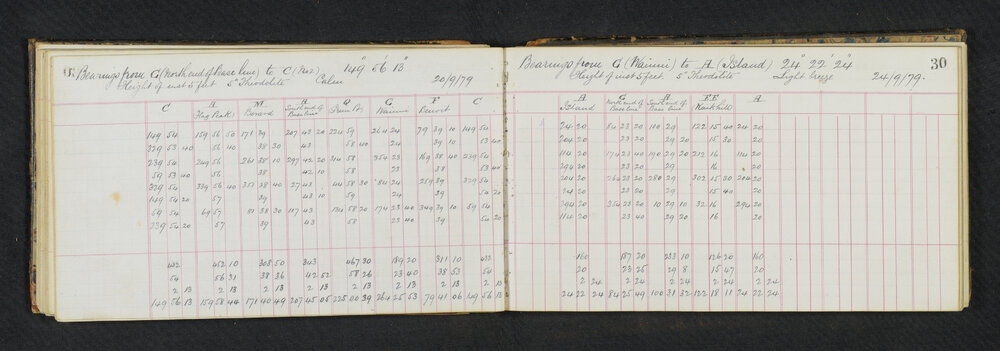 Bearings from G (North end of Base line) to C (No 2) 149° 56' 13"
Height of inst 5 feet 5" Theodolite Calm 20/9/79
C A M A Q G F C
Flag Peak South end of Base line Wainui
149 54 159 56 50 171 39 207 43 20 224 59 264 24 79 39 10 149 54
329 53 40 56 40 38 30 43 58 40 24 39 10 53 40
239 54 249 56 261 38 10 297 42 20 314 58 354 23 169 38 40 239 54
59 53 40 56 38 42 10 58 23 38 53 40
329 54 339 56 40 351 38 40 27 43 44 58 30 84 24 259 39 329 54
149 54 20 57 39 43 10 59 24 39 54 20
59 54 69 57 81 38 30 117 43 134 58 20 174 23 40 349 39 10 59 54
239 54 20 57 39 43 58 23 40 39 54 20
432 452 10 303 50 343 467 30 189 20 311 10 432
54 56 31 38 36 42 52 58 26 23 40 38 53 54
2 13 2 13 2 13 2 13 2 13 2 13 2 13 2 13
149 56 13 159 58 44 171 40 49 207 45 05 225 00 39 264 25 53 79 41 06 149 56 13
Bearings from G (Wainui) to A (Island) 24° 22' 24"
Height of inst 5 feet 5" Theodolite Light breeze 24/9/79.
30
A G A FF A
Island North end of Base line South end of Base line
24 20 84 23 20 100 29 122 15 40 24 20
204 20 23 20 29 20 15 30 20
114 20 174 23 40 190 29 20 212 16 114 20
294 20 23 20 29 16 20
204 20 264 23 20 280 29 302 15 30 204 20
24 20 23 20 29 15 40 20
294 20 354 23 20 10 29 10 32 16 294 20
114 20 23 40 29 20 16 20
160 187 20 233 10 126 20 160
20 23 25 29 8 15 47 20
2 24 2 24 2 24 2 24 2 24
24 22 24 84 25 49 100 31 32 122 18 11 24 22 24